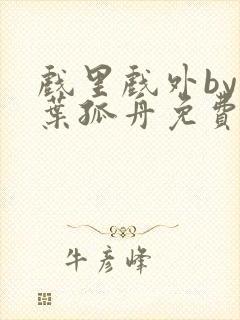 戲里戲外by
葉孤舟免費
牛彥峰